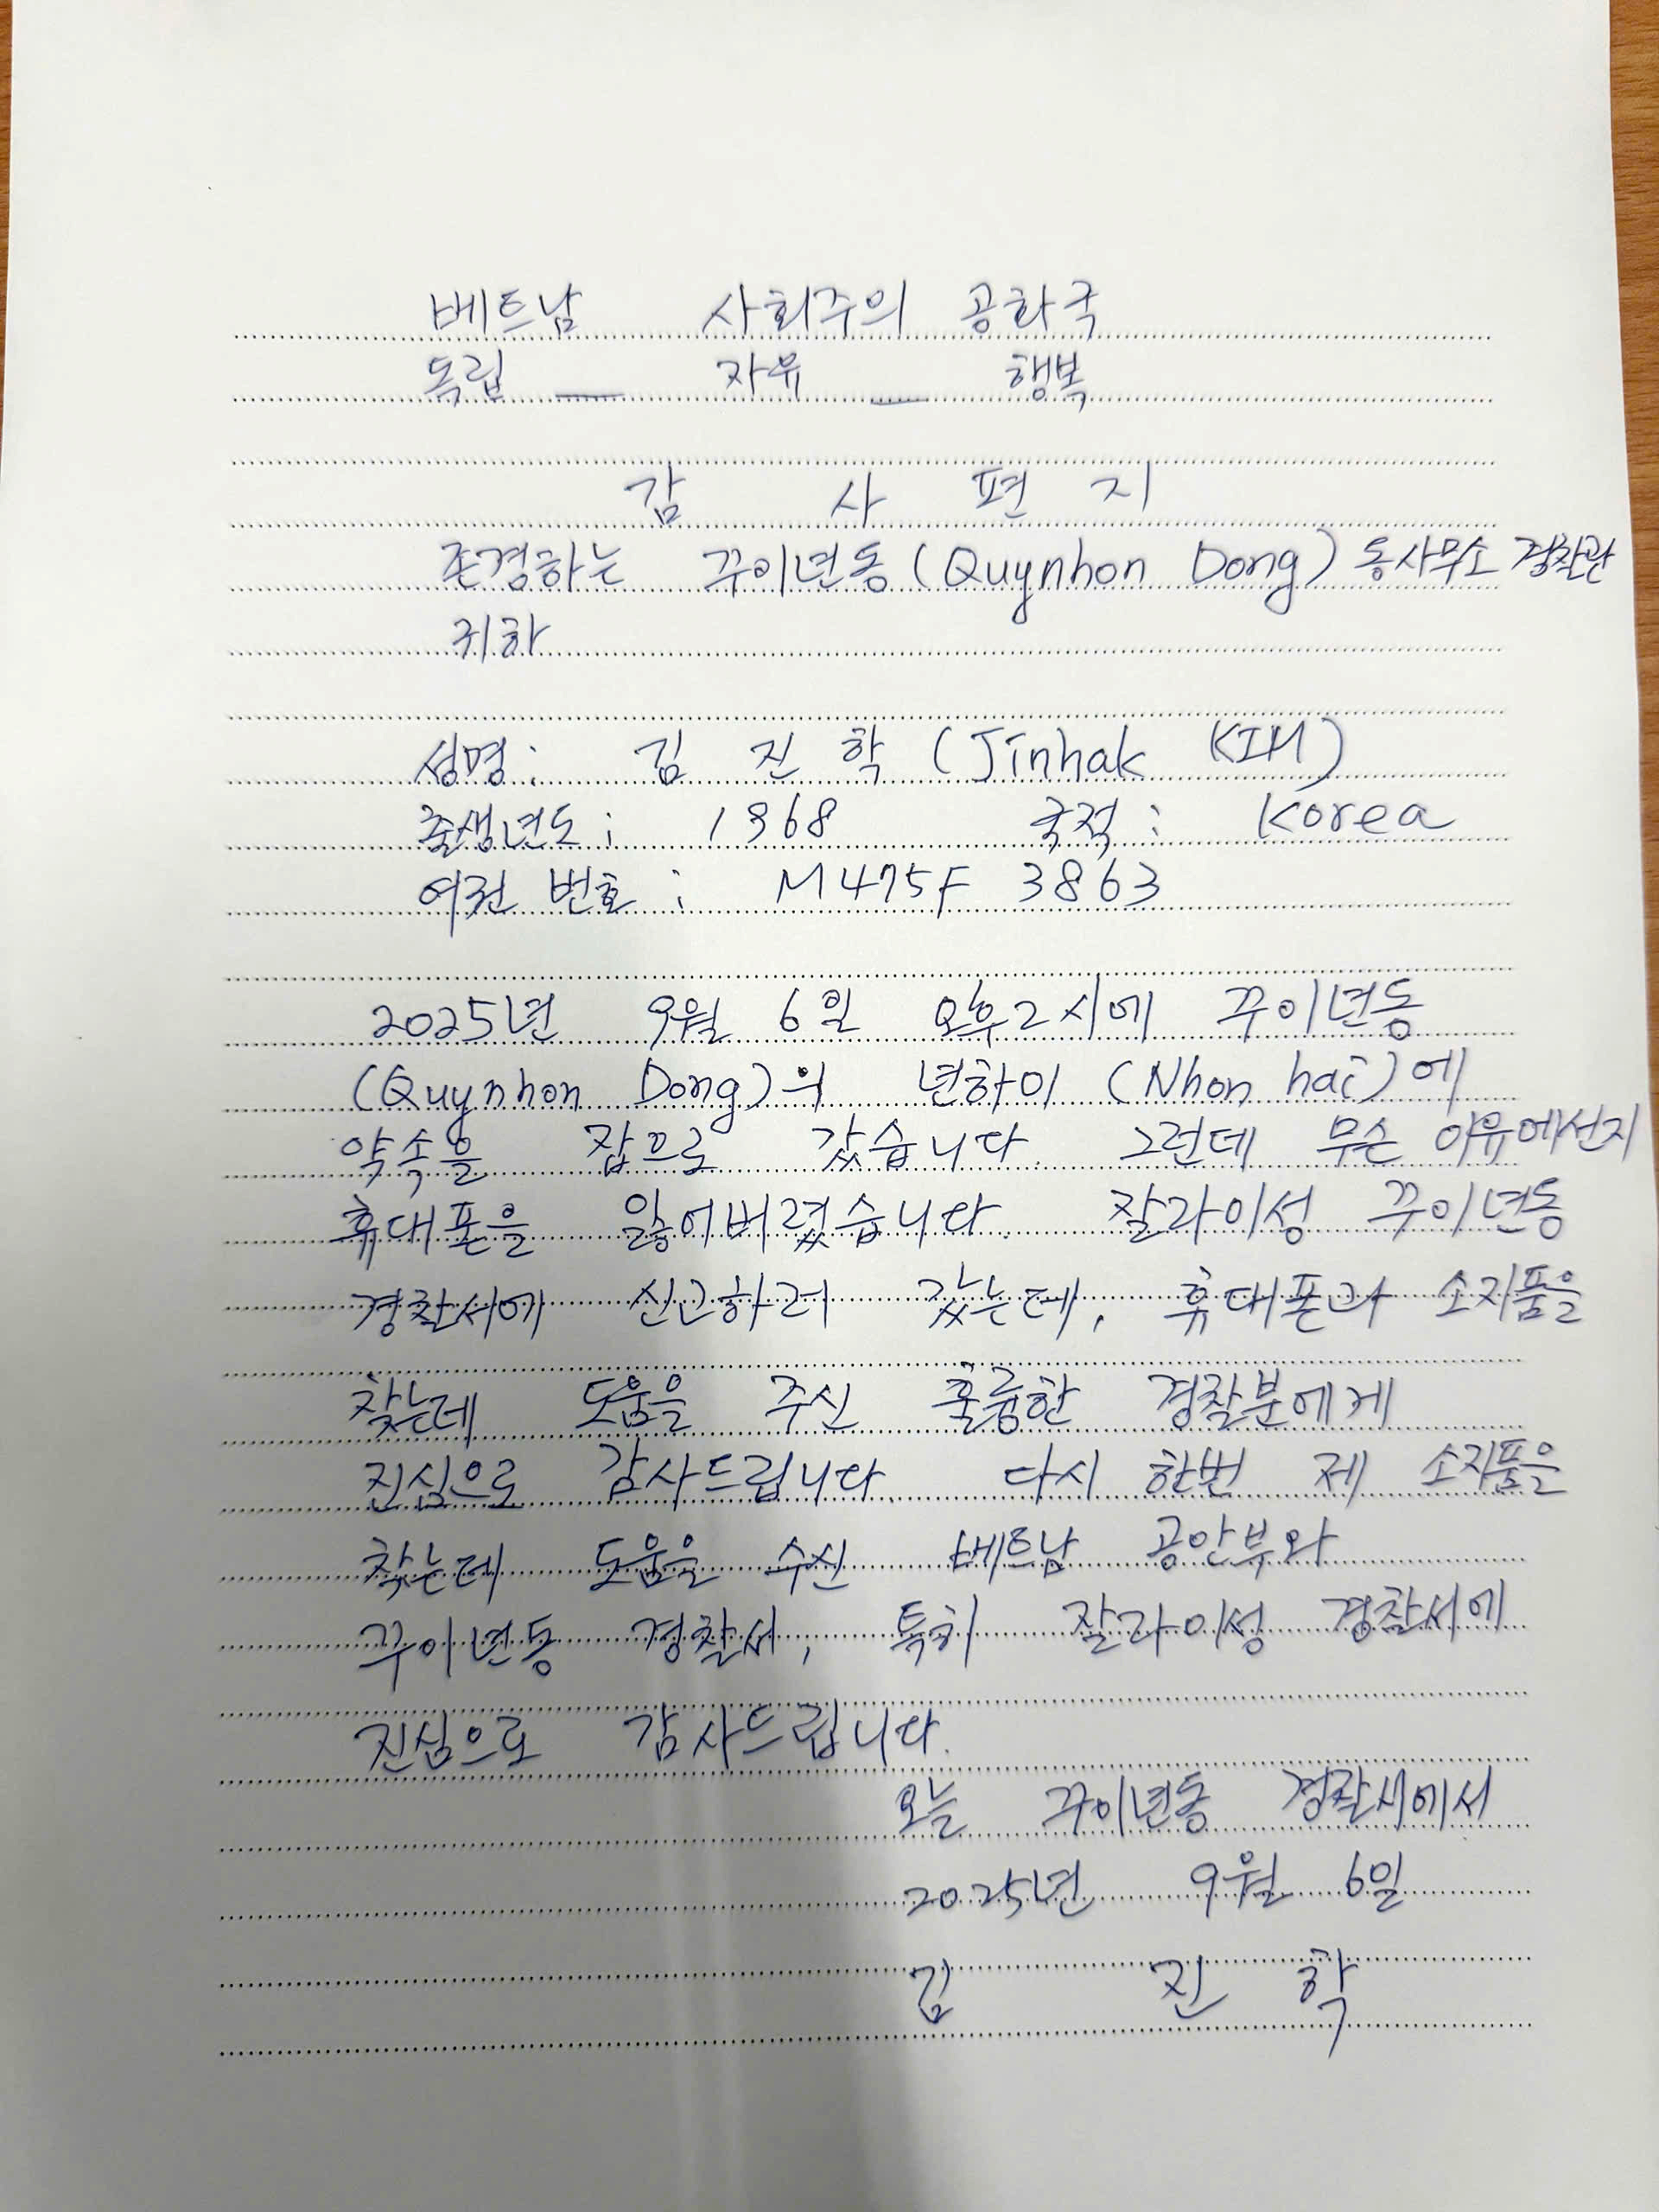 베트남 사회주의 공화국
독립 — 자유 — 행복
감 사 편 지
존경하는 꾸이년동(Quynhon Dong) 동사무소 경찰관
귀하
성명: 김 진 학 (Jinhak KIM)
출생년도: 1968 국적: Korea
여권 번호: M475F 3863
2025년 9월 6일 오후2시에 꾸이년동
(Quynhon Dong)의 년하이 (Nhon hai)에
약속을 잡으로 갔습니다. 그런데 무슨 이유에선지
휴대폰을 잃어버렸습니다. 잘라이성 꾸이년동
경찰서에 신고하러 갔는데, 휴대폰과 소지품을
찾는데 도움을 주신 훌륭한 경찰분에게
진심으로 감사드립니다. 다시 한번 제 소지품을
찾는데 도움을 주신 베트남 공안부와
꾸이년동 경찰서, 특히 잘라이성 경찰서에
진심으로 감사드립니다.
오늘 꾸이년동 경찰서에서
2025년 9월 6일
김 진 학